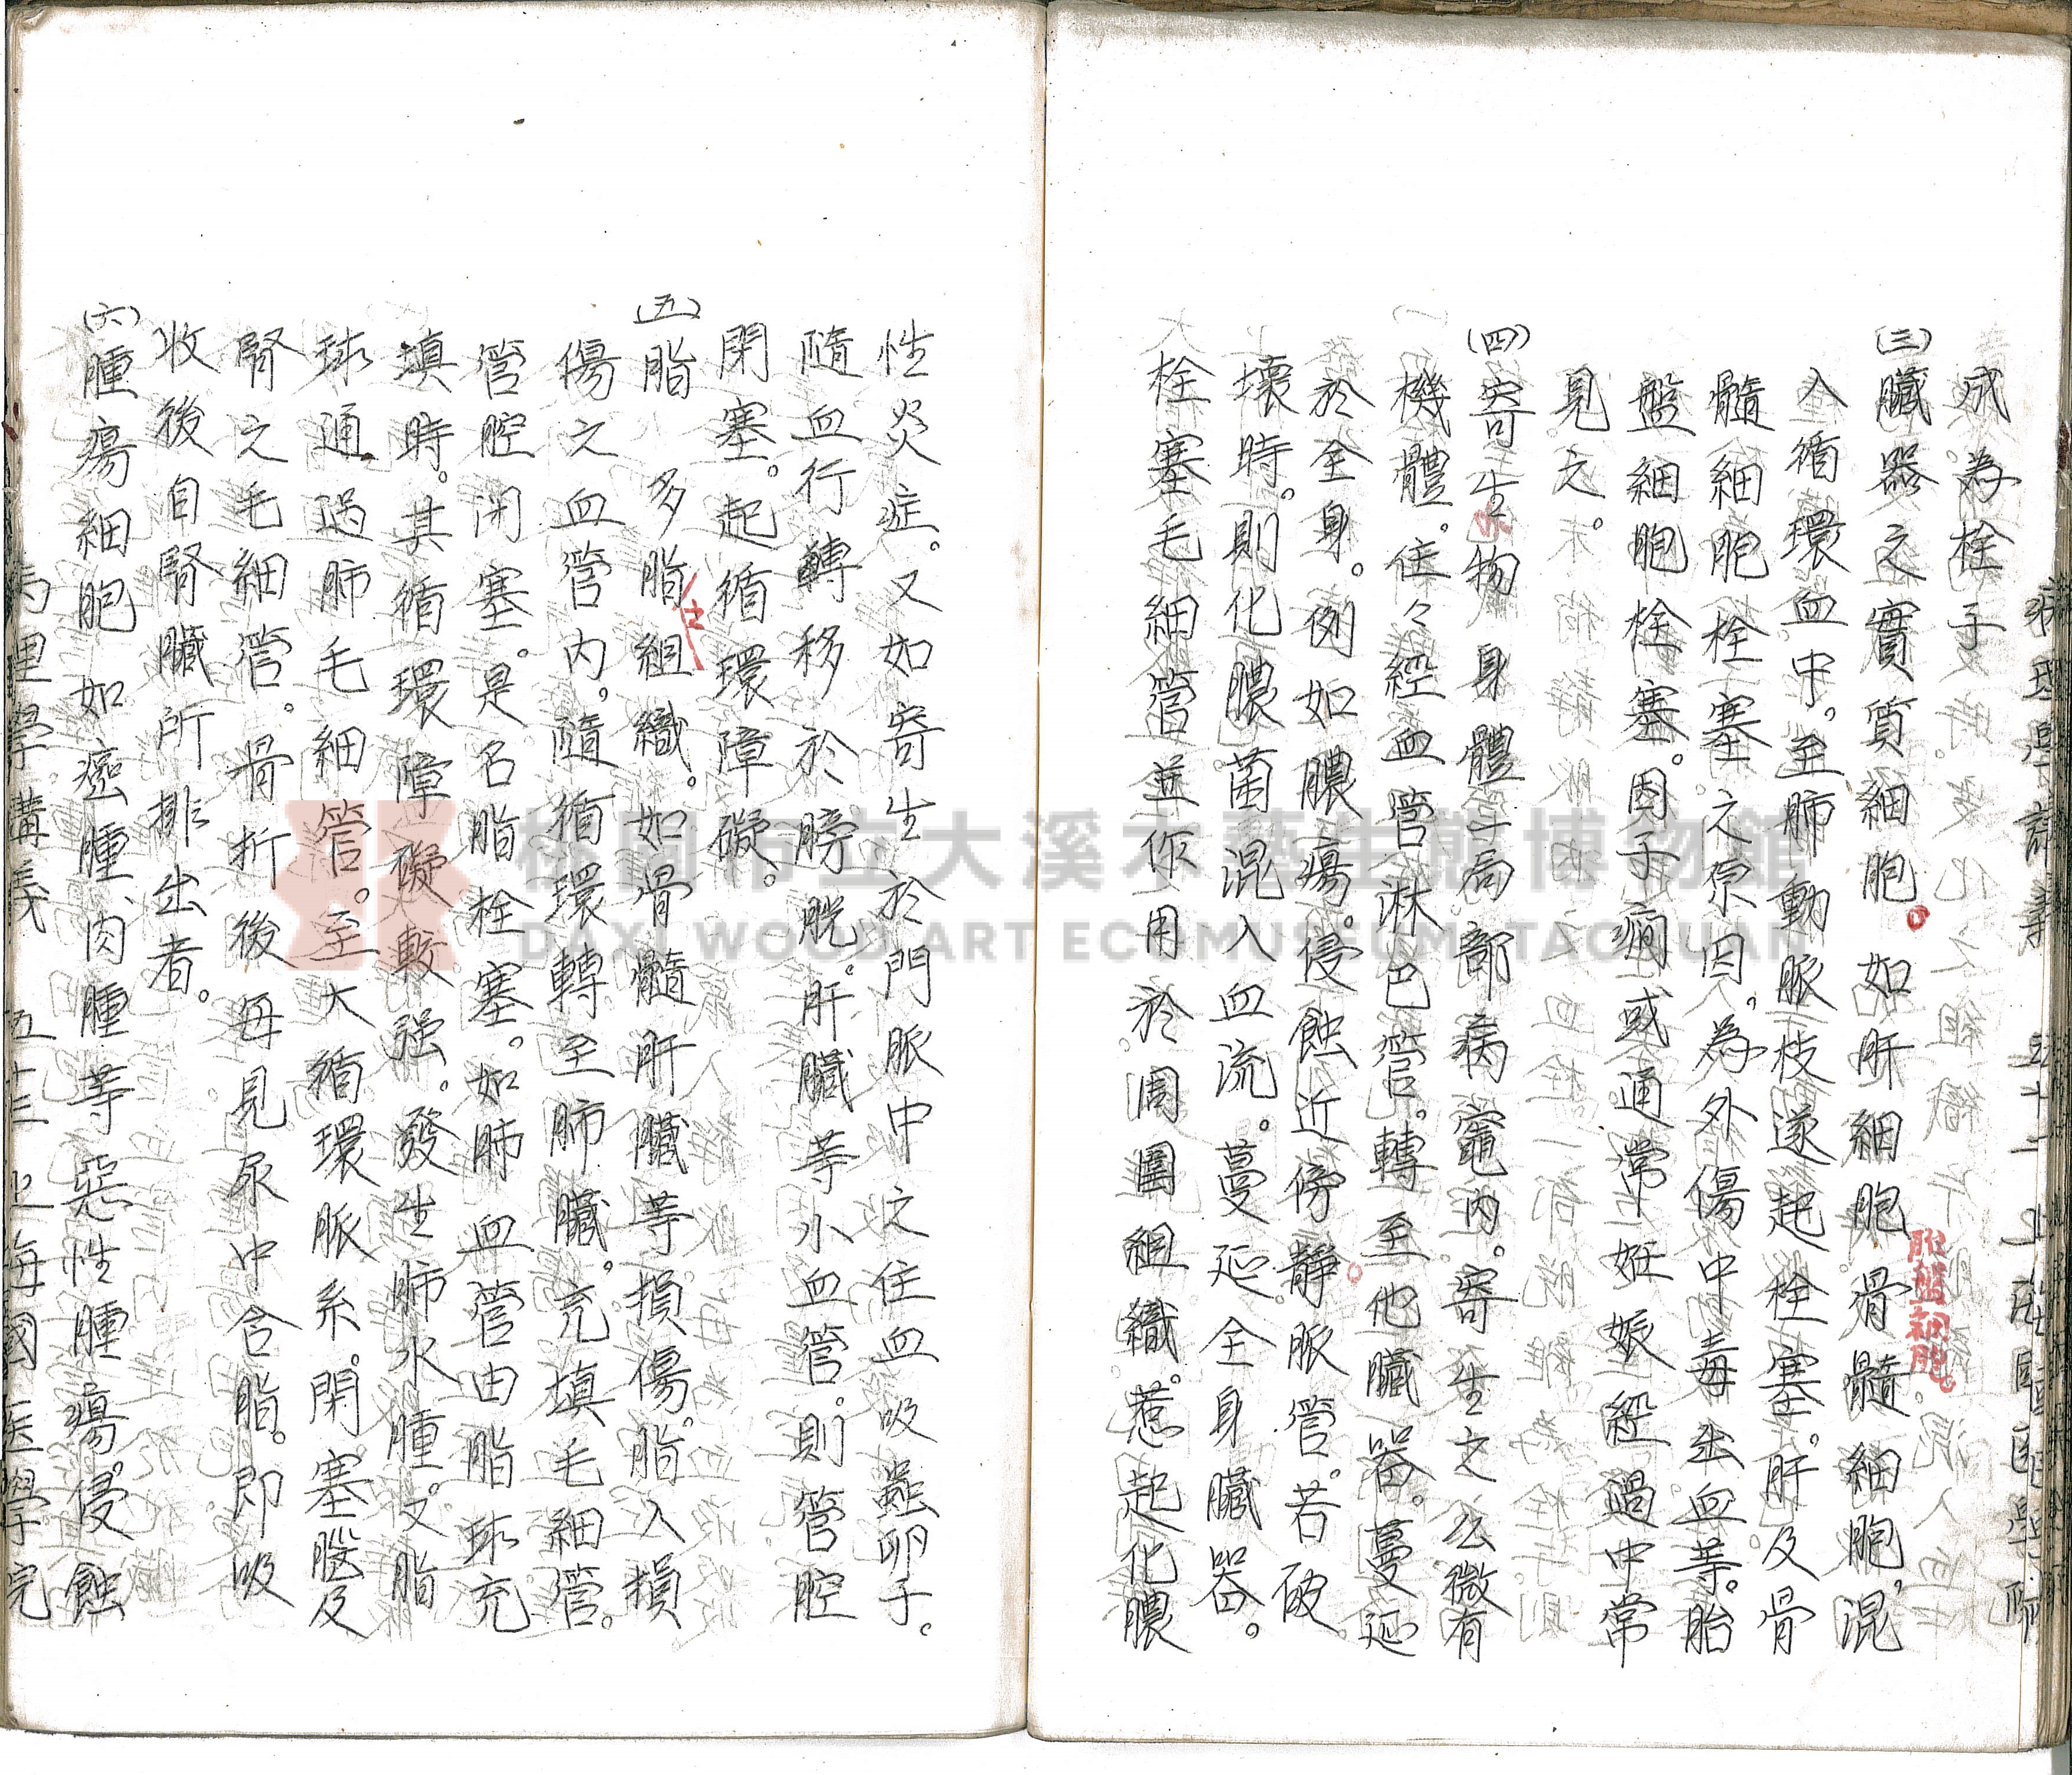 成為栓子
(三)臟器之實質細胞。如肝細胞骨髓細胞,混
胎盤細胞。
入循環血中。至肺動脈枝遂起栓塞。肝及骨
髓細胞栓塞之原因。為外傷中毒出血等。胎
盤細胞栓塞。因子癇或通常妊娠經過中常
見之。
(四)寄生物身體局部病竈內。寄生之公微有
機體。住々經血管淋巴管。轉至他臟器。蔓延
於全身。例如膿瘍。侵蝕近傍靜脈管。若破
壞時。則化膿菌混入血流。蔓延全身臟器。
栓塞毛細管並作用於周圍組織。惹起化膿
性炎症。又如寄生於門脈中之住血吸蟲卵子。
隨血行轉移於膀胱。肝臟等小血管。則管腔
閉塞。起循環障礙。
(五)脂 多脂之組織。如骨髓肝臟等損傷。脂入損
傷之血管內。隨循環轉至肺臟。充填毛細管。
管腔閉塞。是名脂栓塞。如肺血管由脂球充
填時。其循環障礙較强。發生肺水腫。又脂
球通過肺毛細管。至大循環脈系。閉塞腦及
腎之毛細管。骨折後每見尿中含脂。即吸
收後自腎臟所排出者。
(六)腫瘍細胞如癌腫、肉腫等惡性腫瘍。侵蝕
病理學講義 五十三 上海國医學院
桃園市立大溪木藝生態博物館
DAXI WOOD ART ECOMUSEUM, TAOYUAN